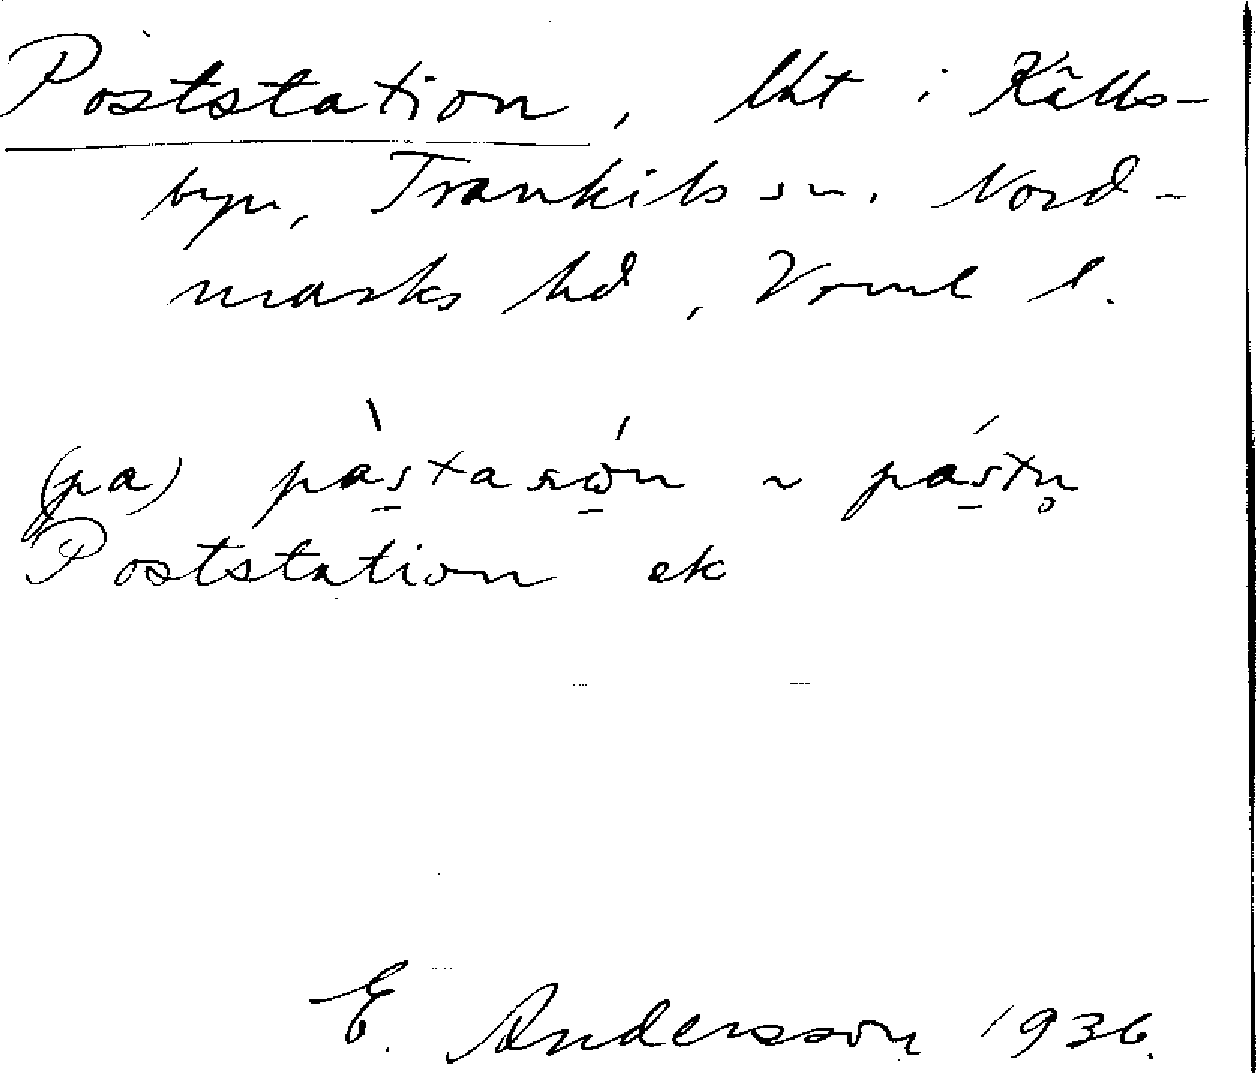 Poststation, lht i Källs-
byn, Trankils sn. Nord-
marks hd, Vrml l.
(pa) pàstasón ~ pástn̥
Poststation ek
E. Andersson 1936.